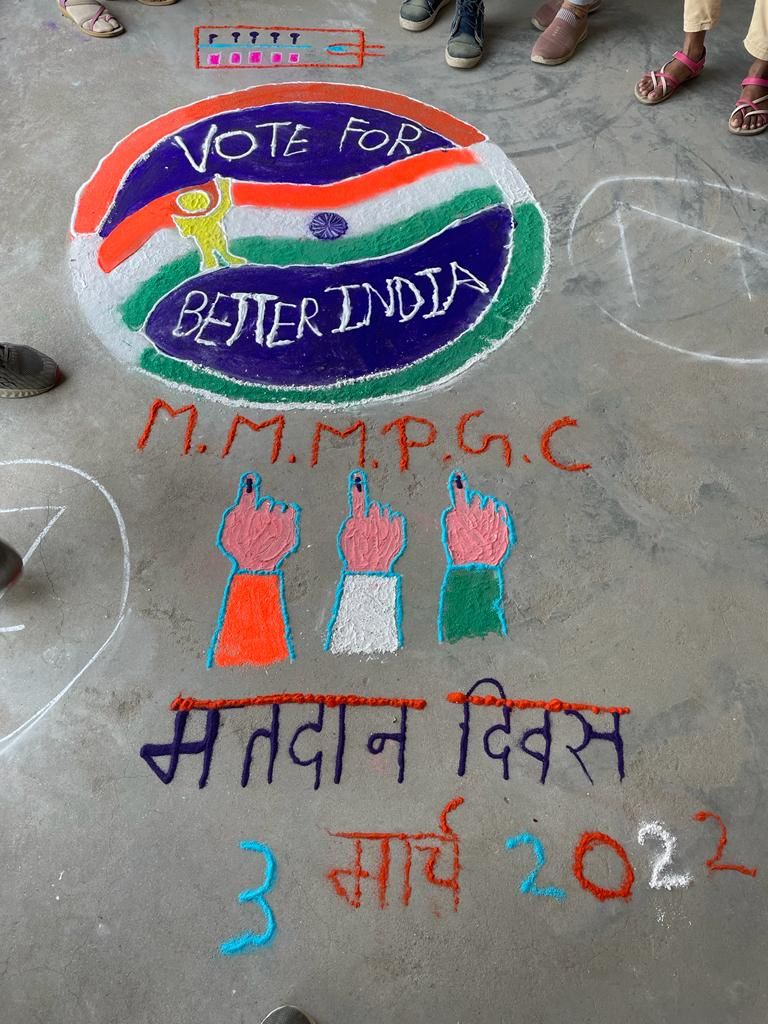 VOTE FOR
BETTER INDIA
M.M.M.P.G.C
मतदान दिवस
3 मार्च 2022